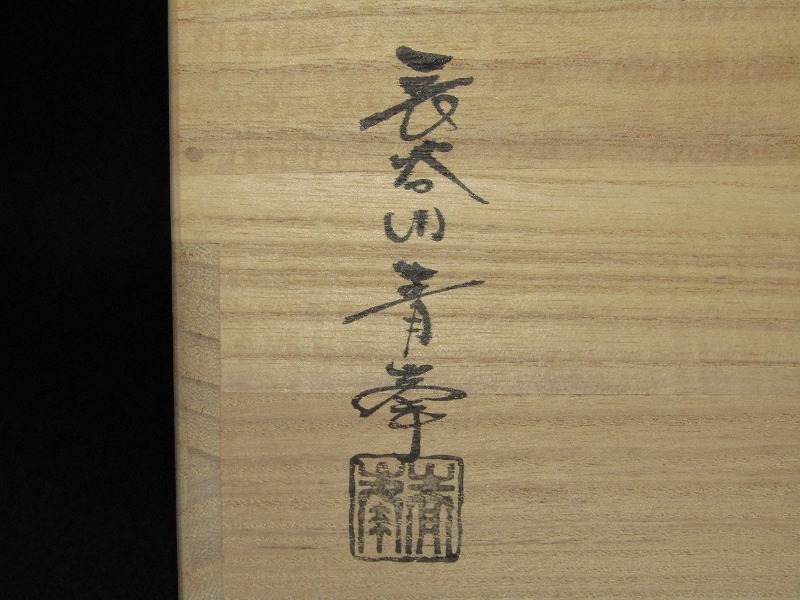 長谷川青峯
青峯